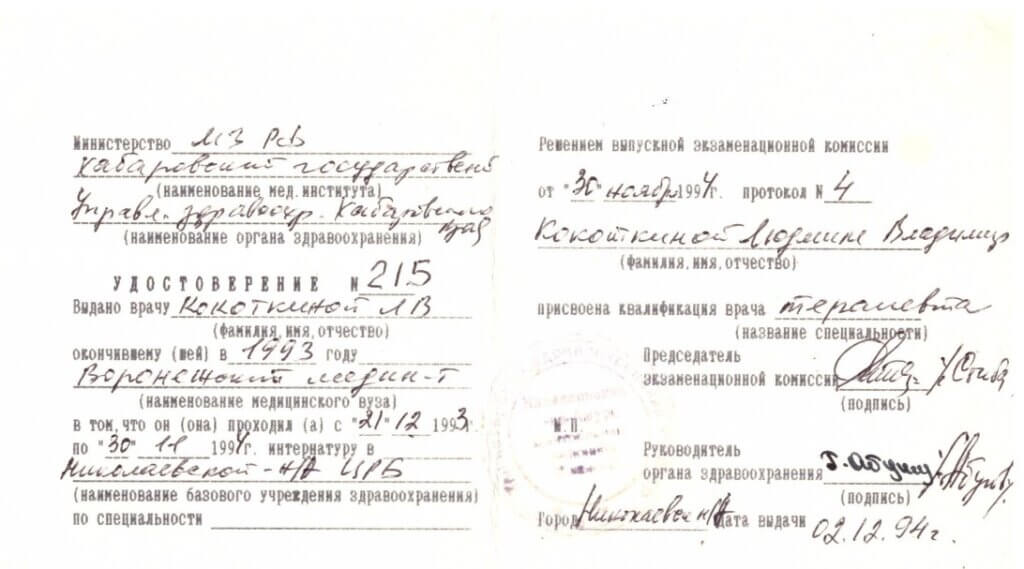 Министерство МЗ РФ
Хабаровский государствен
(наименование мед. института)
Управл. здравоохр. Хабаровского
края
(наименование органа здравоохранения)
УДОСТОВЕРЕНИЕ №215
Выдано врачу Кокоткиной ЛВ
(фамилия, имя, отчество)
окончившему (шей) в 1993 году
Воронежский медин-т
(наименование медицинского вуза)
в том, что он (она) проходил (а) с "21" 12 1993г.
по "30" 11 1994г. интернатуру в
Николаевской-н/А ЦРБ
(наименование базового учреждения здравоохранения)
по специальности
Решением выпускной экзаменационной комиссии
от "30" ноября 1994г. протокол № 4
Кокоткиной Людмиле Владимир
(фамилия, имя, отчество)
присвоена квалификация врача терапевта
(название специальности)
Председатель
экзаменационной комиссии
(подпись)
М.П.
Руководитель
органа здравоохранения
(подпись)
Город Николаевск н/А Дата выдачи
02.12.94г.